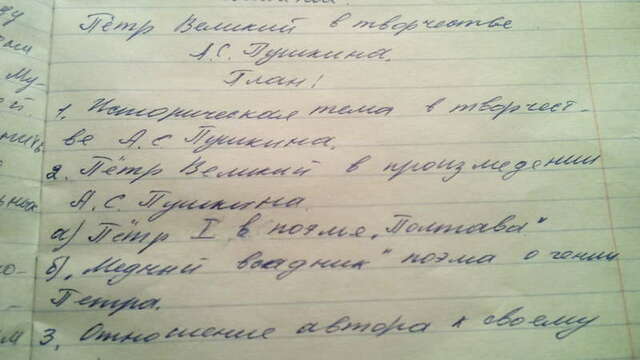 Пётр Великий в творчестве
А.С. Пушкина.
План:
1. Историческая тема в творчест-
ве А.С Пушкина.
2. Пётр Великий в произведении
А.С. Пушкина.
а) Пётр I в поэме „Полтава"
б) „Медный всадник" поэма о гении
Петра.
3. Отношение автора к своему